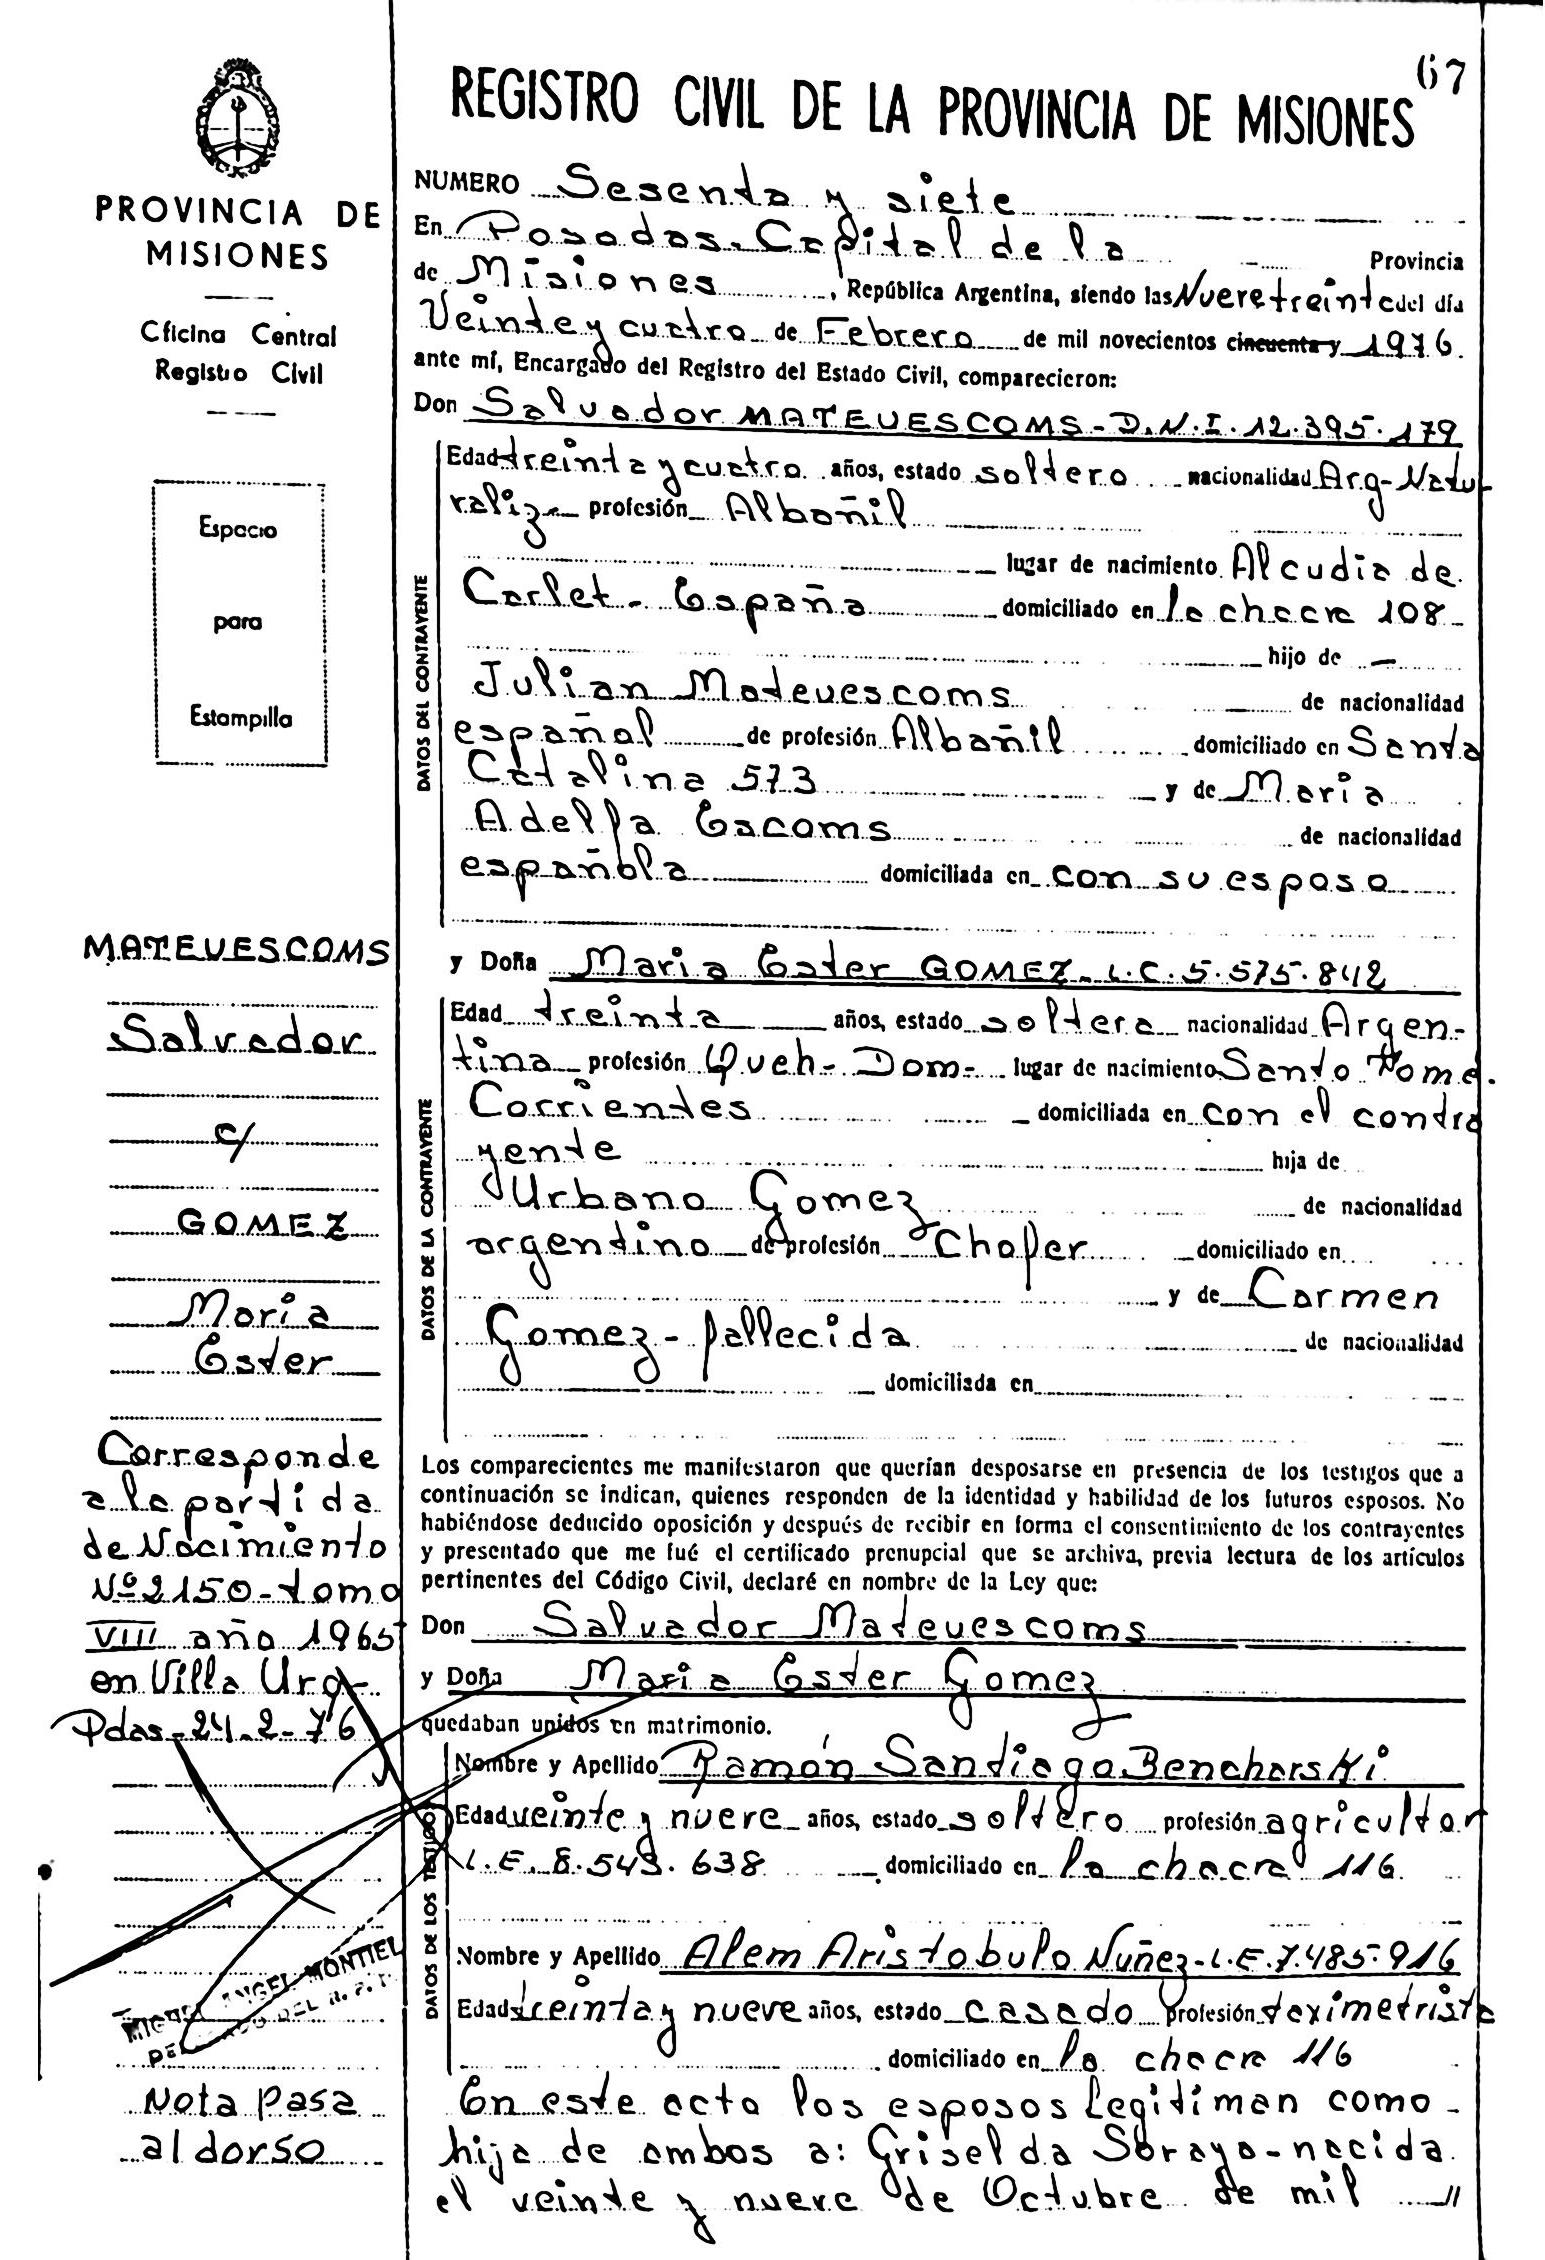 67
REGISTRO CIVIL DE LA PROVINCIA DE MISIONES
PROVINCIA DE
MISIONES
Oficina Central
Registro Civil
Espacio
para
Estampilla
MATEUESCOMS
Salvador
c/
GOMEZ
Maria
Ester
Corresponde
a la partida
de Nacimiento
Nº 2150-tomo
VIII año 1965
en Villa Urq-
Pdas-24-2-76
MIGUEL ANGEL MONTIEL
Nota pasa
al dorso
NUMERO Sesenta y siete
En Posadas. Capital de la Provincia
de Misiones, República Argentina, siendo las Nueve treinta del día
Veinte y cuatro de Febrero de mil novecientos cincuenta y 1976.
ante mí, Encargado del Registro del Estado Civil, comparecieron:
Don Salvador MATEUESCOMS-D.N.I.12.395.179
DATOS DEL CONTRAYENTE
Edad treinta y cuatro años, estado soltero nacionalidad Arg-Natu-
raliz- profesión Albañil
lugar de nacimiento Alcudia de
Carlet-España domiciliado en la chacra 108
hijo de -
Julian Mateuescoms de nacionalidad
español de profesión Albañil domiciliado en Santa
Catalina 573 y de Maria
Adelfa Escoms de nacionalidad
española domiciliada en con su esposo
y Doña Maria Ester GOMEZ-L.C.5.575.842
DATOS DE LA CONTRAYENTE
Edad treinta años, estado soltera nacionalidad Argen-
tina profesión Queh-Dom- lugar de nacimiento Santo Tomé.
Corrientes domiciliada en con el contra
yente hija de
Urbano Gomez de nacionalidad
argentino de profesión Chofer domiciliado en
y de Carmen
Gomez-fallecida de nacionalidad
domiciliada en
Los comparecientes me manifestaron que querían desposarse en presencia de los testigos que a
continuación se indican, quienes responden de la identidad y habilidad de los futuros esposos. No
habiéndose deducido oposición y después de recibir en forma el consentimiento de los contrayentes
y presentado que me fué el certificado prenupcial que se archiva, previa lectura de los artículos
pertinentes del Código Civil, declaré en nombre de la Ley que:
Don Salvador Mateuescoms
y Doña Maria Ester Gomez
quedaban unidos en matrimonio.
DATOS DE LOS TESTIGOS
Nombre y Apellido Ramón Santiago Bencharski
Edad veinte y nueve años, estado soltero profesión agricultor
L.E. 8.543.638 domiciliado en la chacra 116
Nombre y Apellido Alem Aristobulo Nuñez-L.E.7.485.916
Edad treinta y nueve años, estado casado profesión taximetrista
domiciliado en la chacra 116
En este acto los esposos Legitiman como-
hija de ambos a: Griselda Soraya-nacida
el veinte y nueve de Octubre de mil //